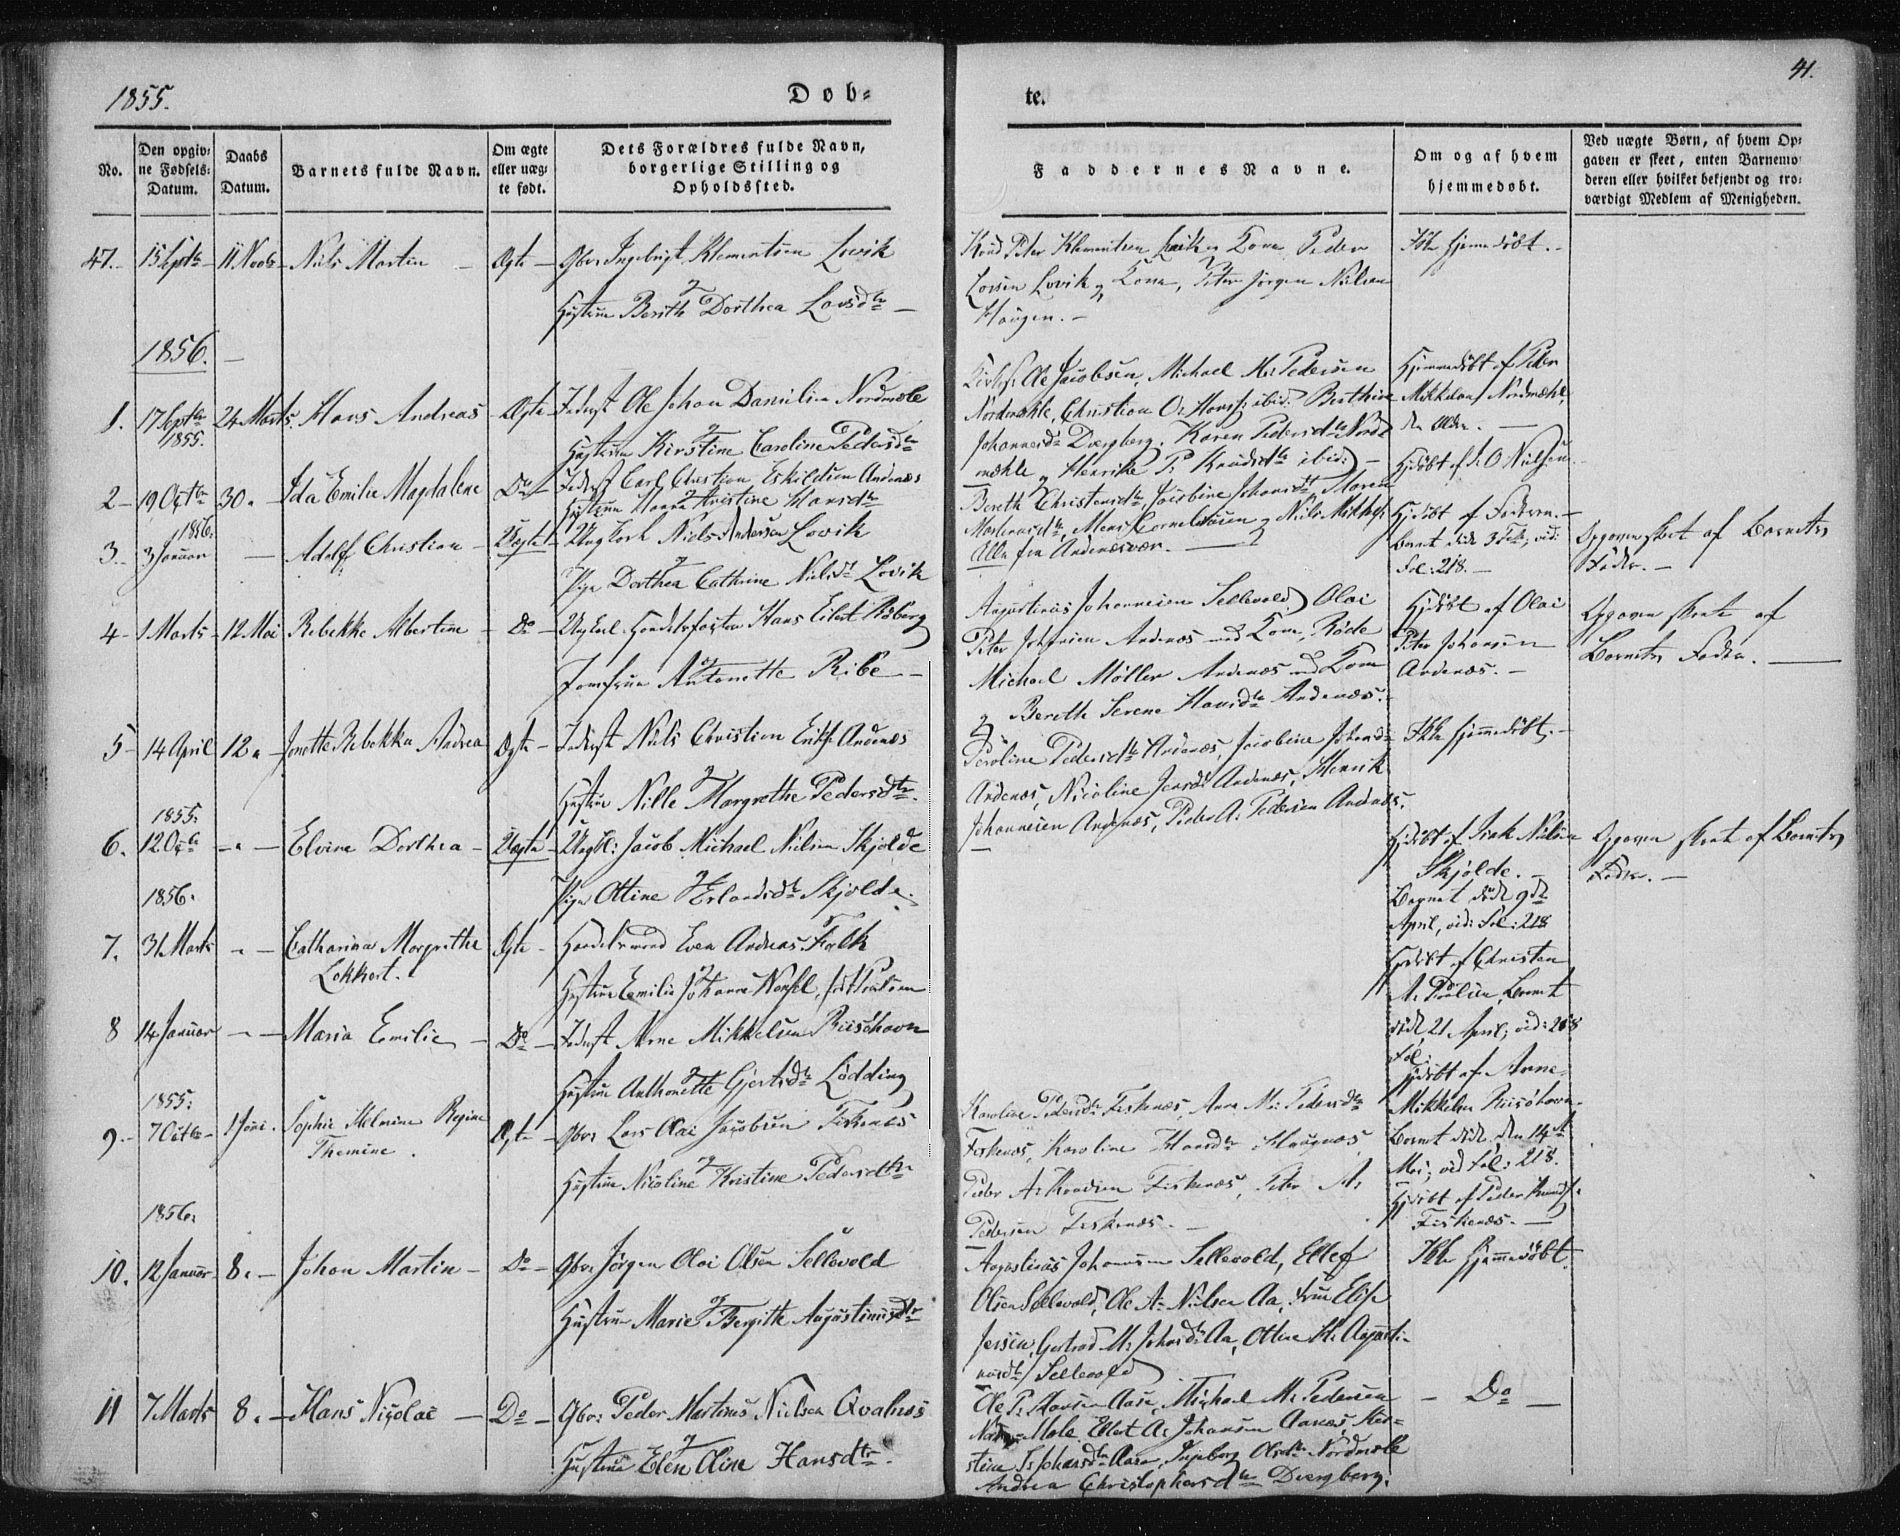 1855.
Døb-
te.
41.
No.
Den opgiv-
ne Fødsels-
Datum.
Daabs
Datum.
Barnets fulde Navn.
Om ægte
eller uæg-
te født.
Dets Forældres fulde Navn,
borgerlige Stilling og
Opholdssted.
Faddernes Navne.
Om og af hvem
hjemmedøbt.
Ved uægte Børn, af hvem Op-
gaven er skeet, enten Barnemo-
deren eller hvilket bekjendt og tro-
værdigt Medlem af Menigheden.
47. 15 Septbr 11 Novbr Niels Martin Ægte Gbr: Ingebrigt Klementsen Lovik
og
Hustrue Berith Dorthea Larsdtr
Knud Peter Klementsen Lovik og Kone Peder
Larsen Lovik og Kone, Peter Jørgen Nielsen
Haugen.
Ikke hjemmedøbt.
1856.
1. 17 Septbr 24 Marts Hans Andreas Ægte Inderst Ole Johan Danielsen Nordmele
1855.
Hustrue Kirstine Caroline Pedersdtr
Ole Jacobsen, Michael M: Pedersen
Nordmehle, Christian O: Hanss: ibid: Berthine
Johannesdtr Dverberg, Karen Pedersdtr Nord-
mehle og Henrike P: Knudsdtr ibid:
Hjemmedøbt af Peder
Mikkelsen Nordmehle,
den Ældre.
2 19 Octbr 30 " Ida Emilie Magdalene Do Inderst Carl Christian Eskildsen Andenæs
Hustrue Hanna Kristine Hansdtr
Bereth Christensdtr, Jacobine Johansdtr, Maren
Martinusdtr, Mons Corneliusen og Niels Mikkels:
Alle fra Andenæsvær.
Hjdøbt af O Nielsen
1856.
3. 3 Januar Adolf Christian Uægte Ungkarl Niels Andersen Lovik
og
Pige Dorthea Cathrine Nielsdtr Lovik
Hjdøbt af Faderen.
Barnet døde 3 Feb; vid:
Fol: 218.
Opgaven skeet af Barnets
Fader.
4 1 Marts 12 Mai Rebekke Albertine Do Ungkarl Handelsfaktor Hans Eilert Roberg
og
Jomfrue Antonette Ribe
Augustinus Johannesen Sellevold, Olai
Peter Johansen Andenæs med Kone, Røde
Michael Møller Andenæs med Kone
og Bereth Serene Hansdtr Andenæs.
Hjdøbt af Olai
Peter Johansen
Andenæs.
Opgaven skeete af
Barnets Fader.
5 14 April 12 " Jonette Rebekka Andrea Ægte Inderst Niels Christian Andenæs
og
Hustrue Nille Margrethe Pedersdtr.
Peroline Pedersdtr Andenæs, Jacobine Johansdtr
Andenæs, Nicoline Jensdtr Andenæs, Henrik
Johannesen Andenæs, Peder A: Pedersen Andenæs.
Ikke hjemmedøbt.
1855.
6. 12 Elvine Dorthea Uægte Ungk: Jacob Michael Nielsen Skjolde
og
Pige Ottine Erlandsdtr Skjolde.
Hjdøbt af Isak Nielsen
Skjolde.
Barnet døde 9de
April, vide: Fol: 218
Opgaven skeete af Barnets
Fader.
1856.
7. 31 Marts Catharina Margrethe
Lekkert.
Ægte Handelsmand Even Andreas Falk
og
Hustrue Emilie Johanna født Poulsen
Hjdøbt af Christen
A: Poulsen, Barnet
død 21 April; vid: 218
Fol.
8 14 Januar Maria Emilie Do Inderst Arne Mikkelsen Riisøhavn
og
Hustrue Anthonette Gjertsdtr Lødding
Hjdøbt af Arne
Mikkelsen Riisøhavn
Barnet døde den 14de
Mai; vid Fol: 218.
1855:
9. 7 Octbr 1 Juni. Sophie Helmine Regine
Themine.
Ægte Gbr: Lars Olai Jacobsen Fiskenæs
og
Hustrue Nicoline Kristine Pedersdtr
Karoline Pedersdtr Fiskenæs, Anne M: Pedersdtr
Fiskenæs, Karoline Hansdtr Haugnæs,
Peder A: Knudsen Fiskenæs, Peter M:
Pedersen Fiskenæs.
Hjdøbt af Peder Knuds:
Fiskenæs.
1856.
10. 12 Januar 8. Johan Martin Do Gbr: Jørgen Olai Olsen Sellevold
og
Hustrue Marie Bergitte Augustinusdtr
Augustinus Johannesen Sellevold, Ellef
Olsen Sellevold, Ole A: Nielsen Aa, Frue Elise
Jensen, Gertrud M: Johansdtr Aa, Ottine M: Augusti-
nusdtr Sellevold
Ikke hjemmedøbt.
11 7 Marts 8. Hans Nicolai Do Gbr: Peder Martinus Nielsen Qvalnes
og
Hustrue Elen Oline Hansdtr.
Ole P: Hansen Aase, Michael M: Pedersen
Mele, Edert A: Johansen Aanæs, Ker-
stine I: Johansdtr Aase, Ingeborg Olsdtr Nordmele
Andrea Christophersdtr Dverberg.
Do